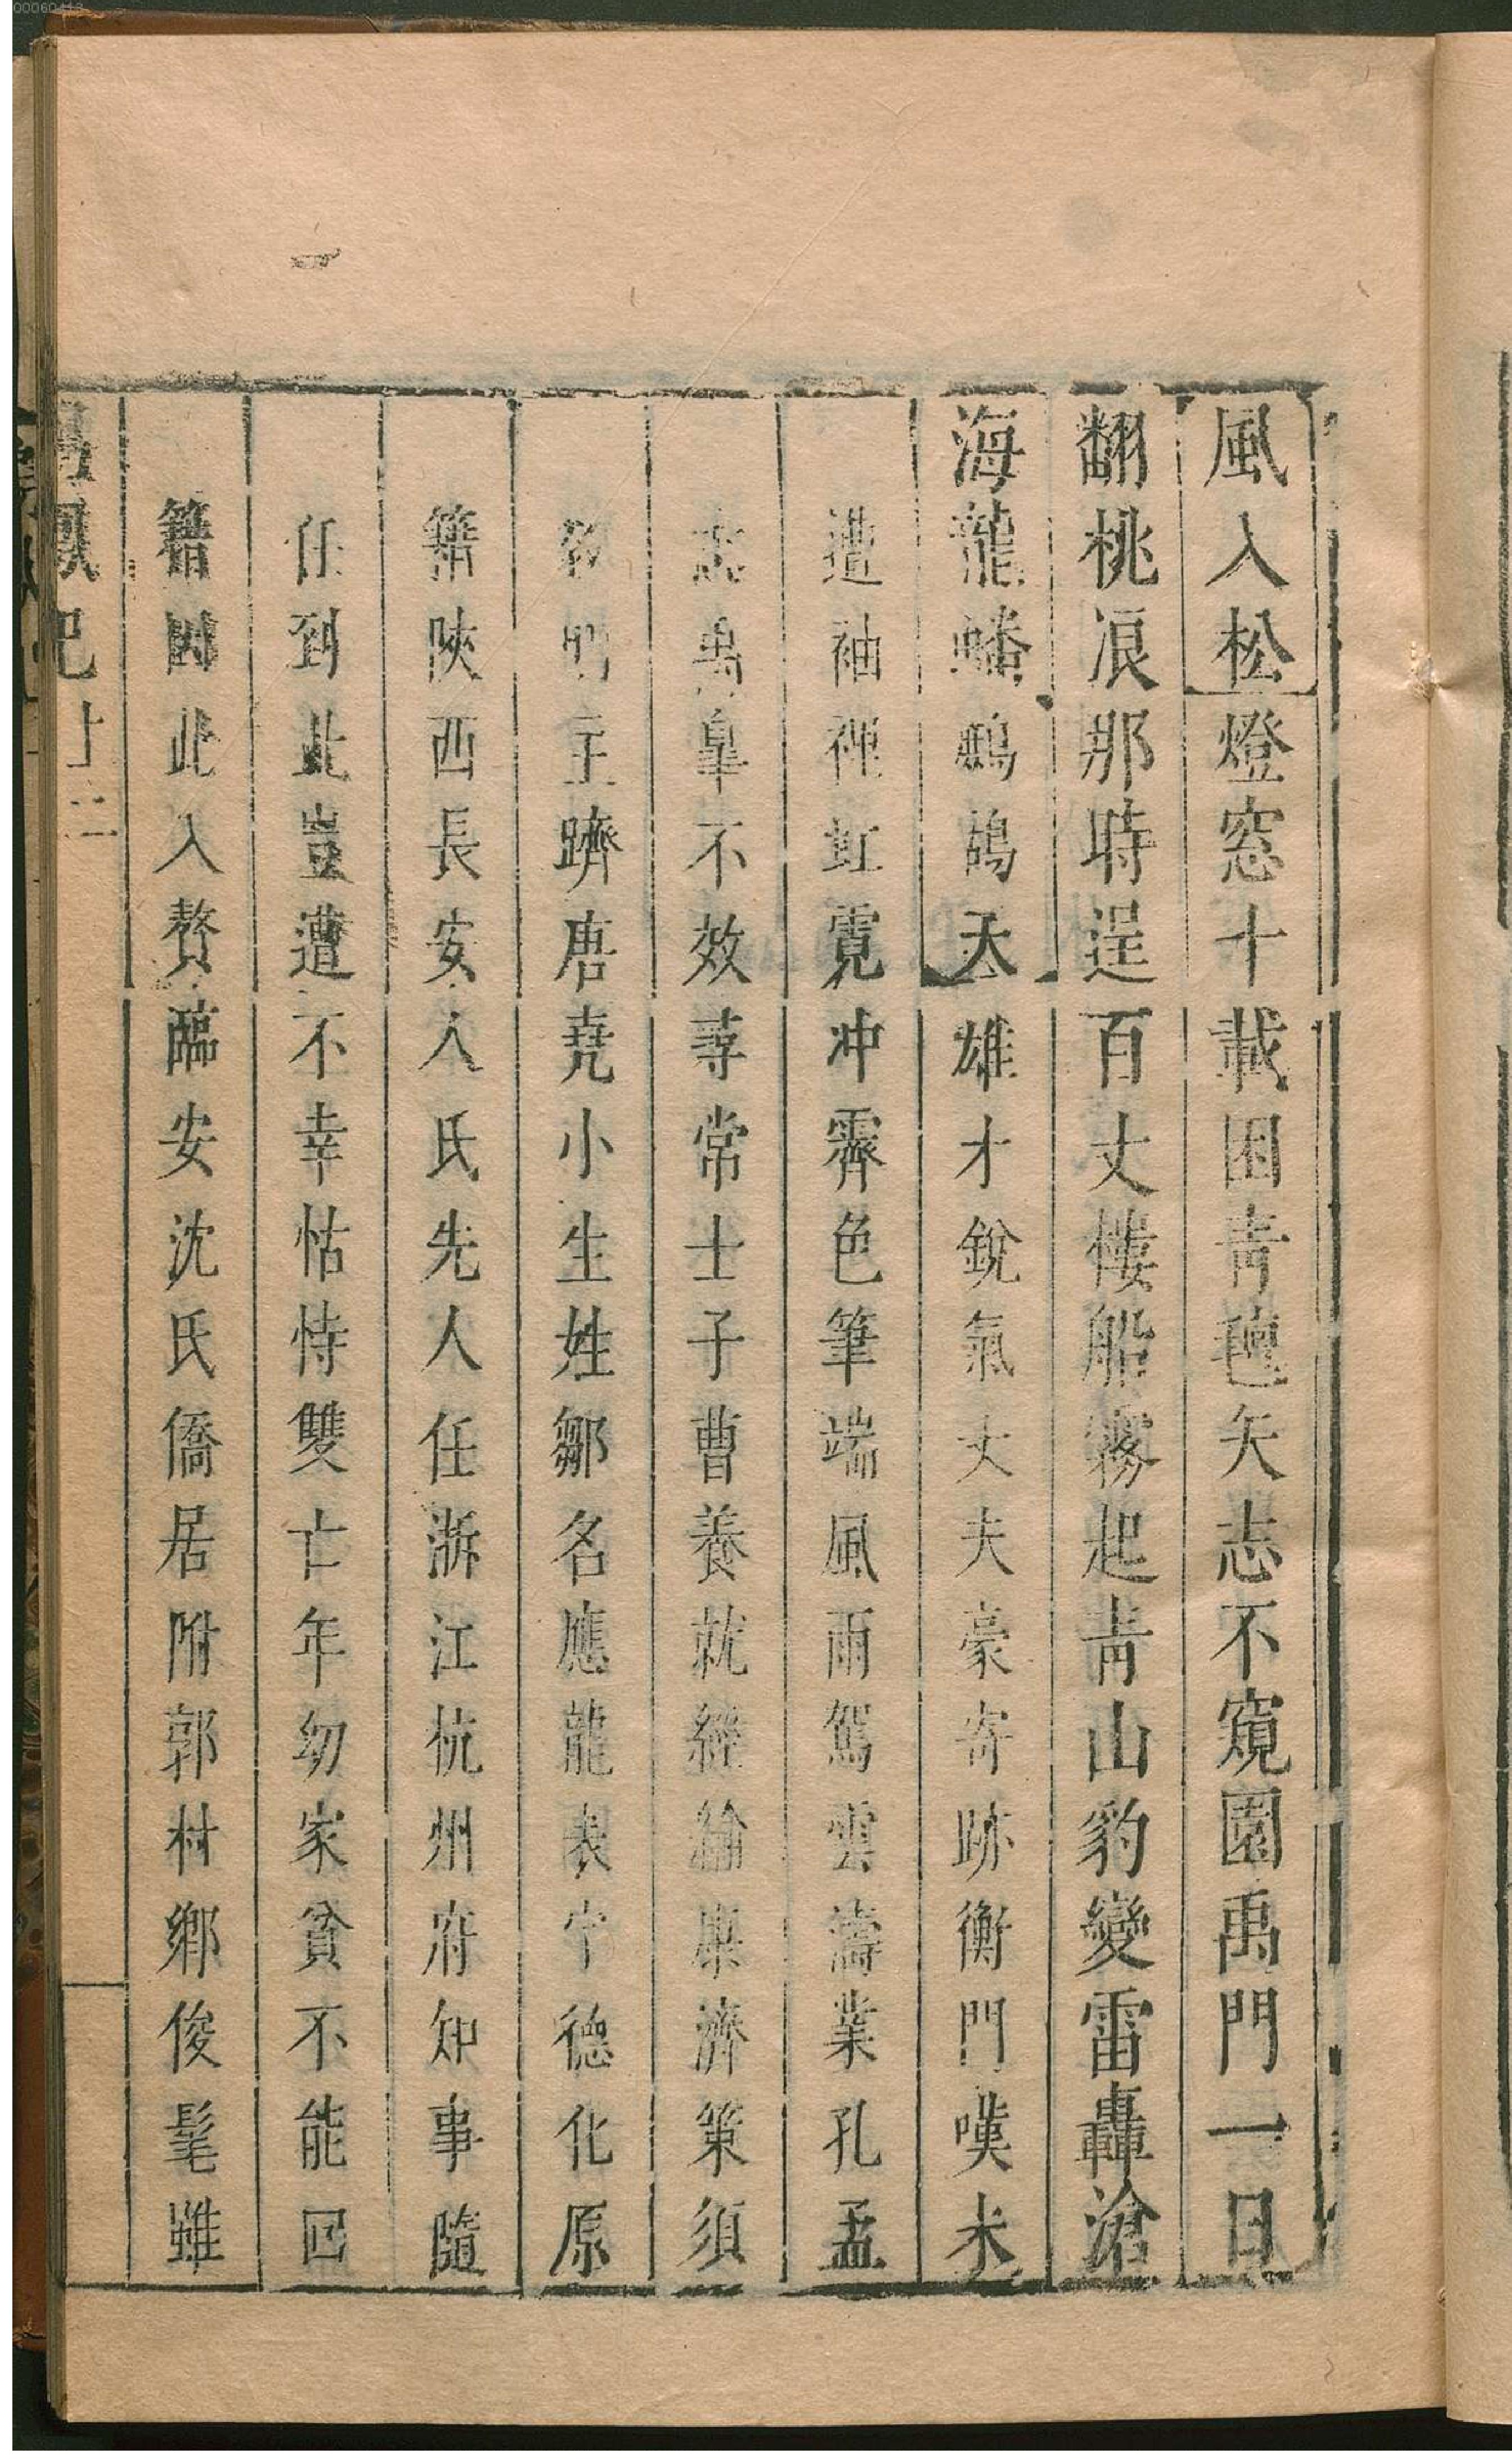 00060413
風入松燈窓十載困靑氊矢志不窺園禹門一日
翻桃浪那時逞百丈樓船霧起靑山豹變雷轟滄
海龍蟠鷓鴣天雄才銳氣丈夫豪寄跡衡門嘆未
遭袖裡虹霓冲霽色筆端風雨駕雲濤業孔孟
志禹皐不效尋常士子曹養就經綸康濟策須
明主躋唐堯小生姓鄒名應龍表字德化原
籍陝西長安人氏先人任浙江杭州府知事隨
任到此豈遭不幸怙恃雙亡年幼家貧不能回
籍因此入贅臨安沈氏僑居附郭村鄉俊髦雖
鳳記 十二